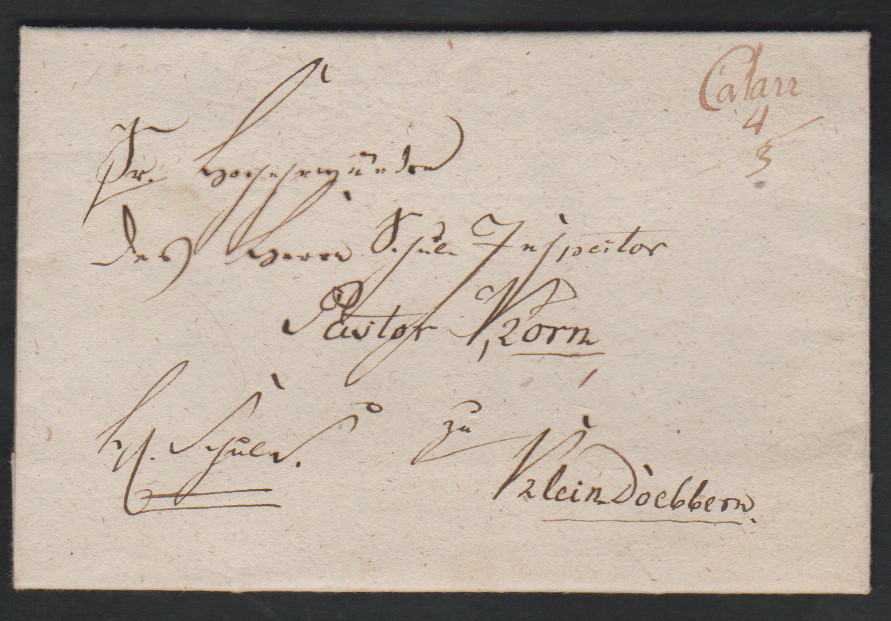 Calau
4
3
Sr. Hochehrwürden
des Herrn Schul Inspector
Pastor Korn
zu
Schuls.
Klein Doebbern.